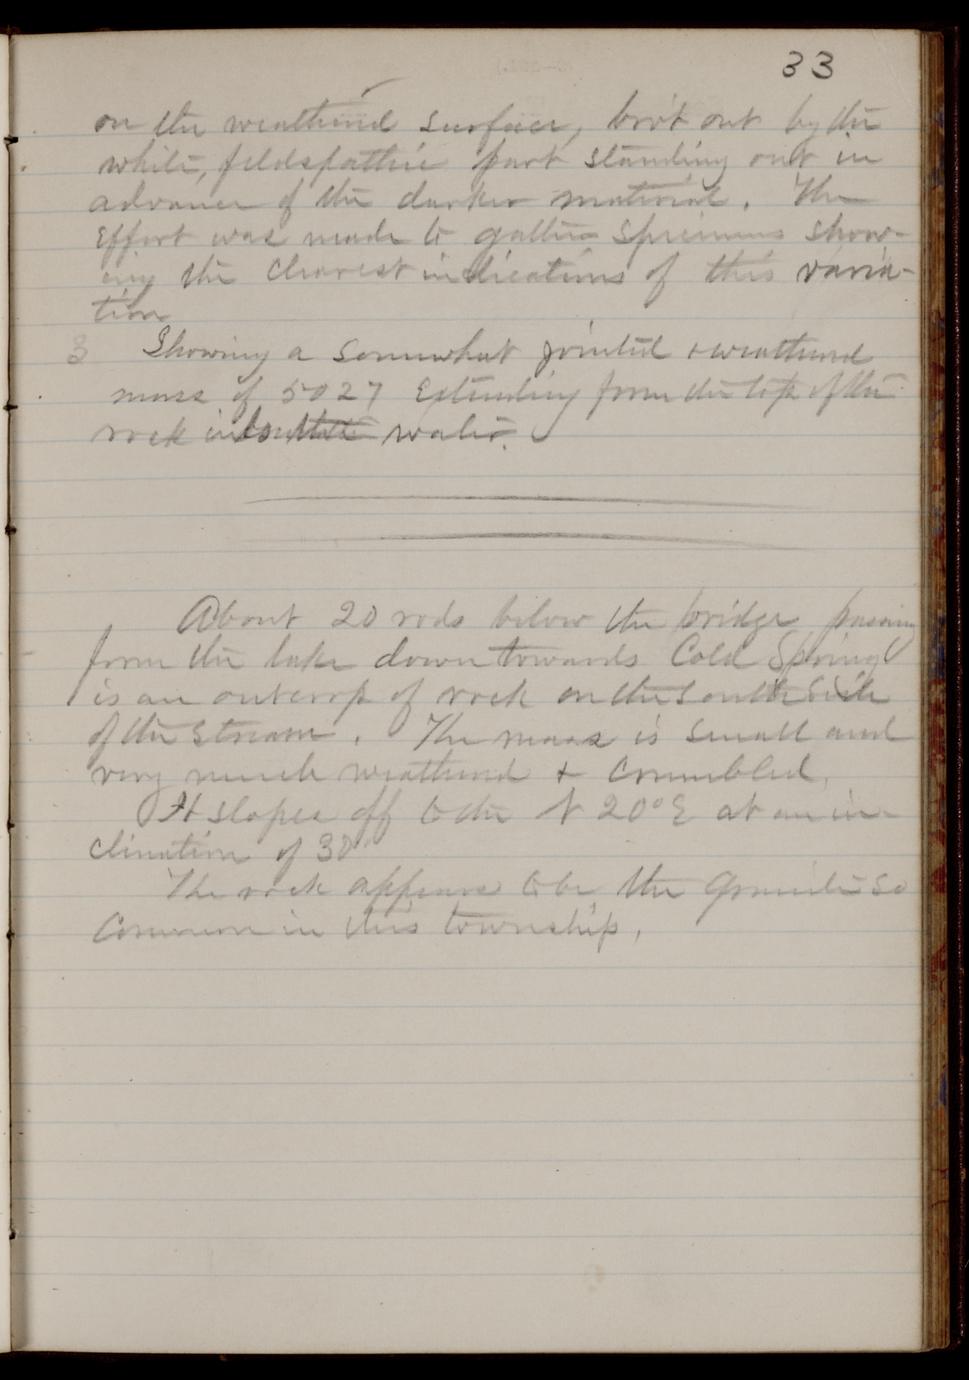 33
on the weathered surface, bro't out by the
white, feldspathic part standing out in
advance of the darker material. The
Effort was made to gather specimens show-
ing the clearest indications of this varia-
tion
3 Showing a somewhat jointed & weathered
mass of 5027 Extending from the top of the
rock into the water.
About 20 rods below the bridge passing
from the lake down towards Cold Spring
is an outcrop of rock on the South Side
of the stream. The mass is small and
very much weathered & crumbled.
It slopes off to the N 20° E at an in-
clination of 30°
The rock appears to be the granite so
Common in this township.